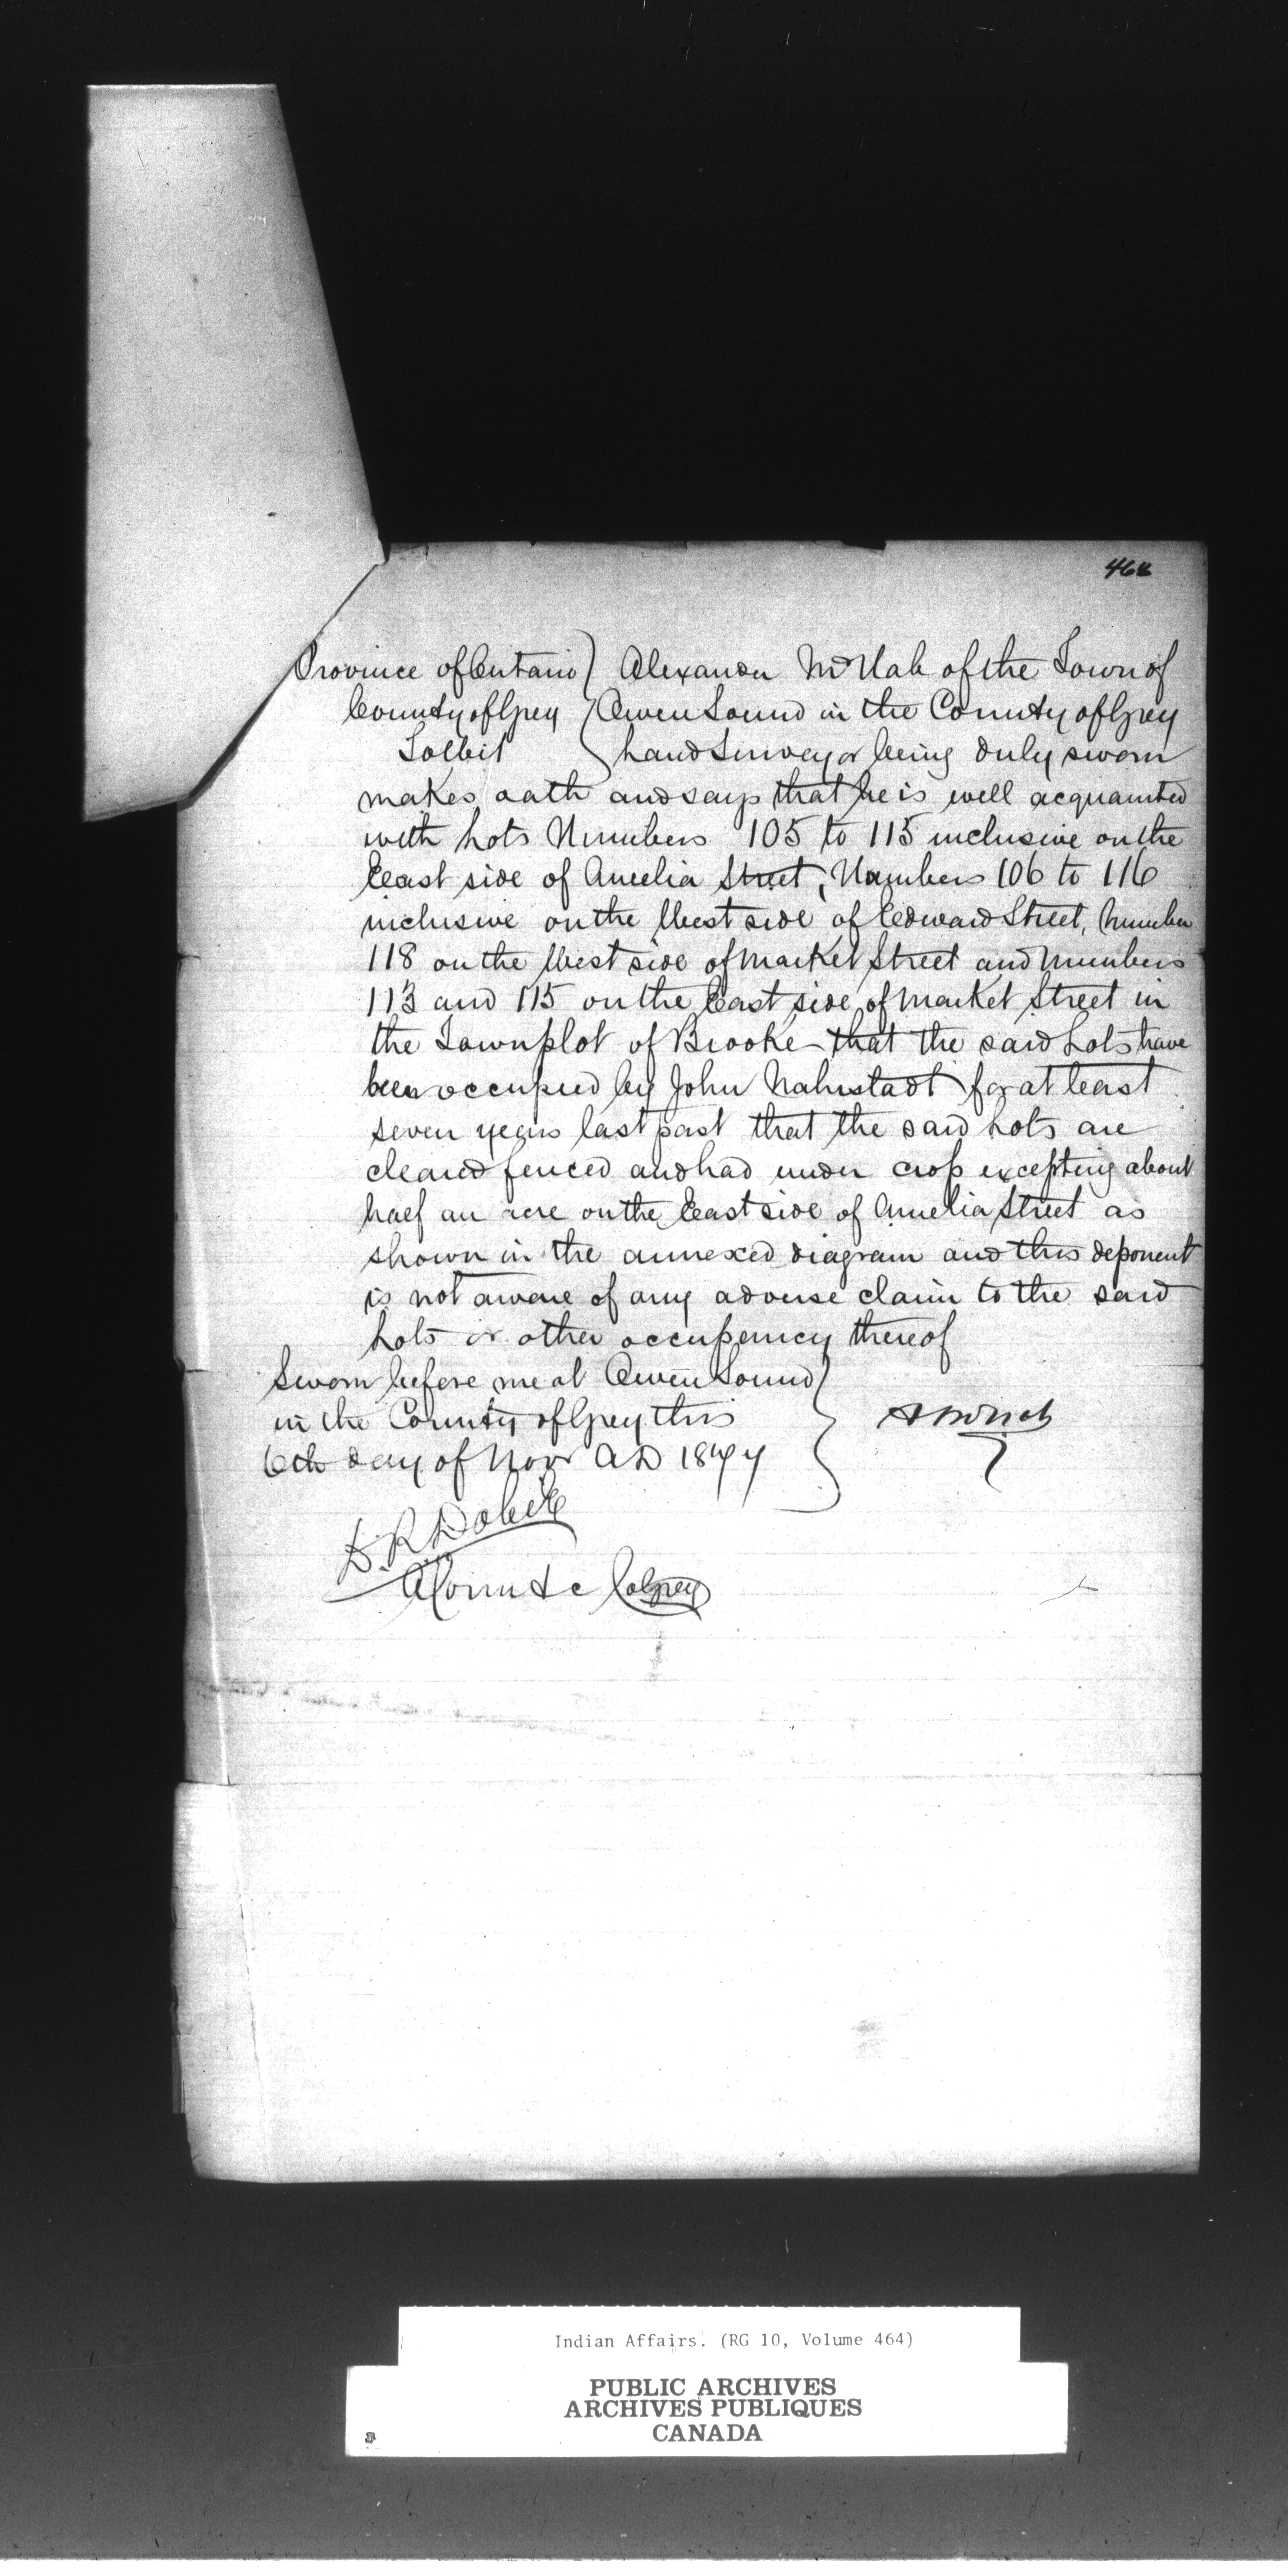 Province of Ontario ) Alexander McNab of the Town of
County of Grey ) Owen Sound in the County of Grey
To Wit ) Land Surveyor being duly sworn
makes oath and says that he is well acquainted
with Lots Numbers 105 to 115 inclusive on the
East side of Amelia Street, Numbers 106 to 116
inclusive on the West side of Edward Street, Number
118 on the West side of Market Street and numbers
113 and 115 on the East side of Market Street in
the Townplot of Brooke that the said Lots have
been occupied by John Nahrstadt for at least
seven years last past that the said Lots are
cleared fenced and had under crop excepting about
half an acre on the East side of Amelia Street as
shown in the annexed diagram and this deponent
is not aware of any adverse claim to the said
Lots or other occupancy thereof
Sworn before me at Owen Sound )
in the County of Grey this ) A McNab
6th day of Novr AD 1877 )
D. R. Dobie
A Comr &c Co Grey
Indian Affairs. (RG 10, Volume 464)
PUBLIC ARCHIVES
ARCHIVES PUBLIQUES
CANADA